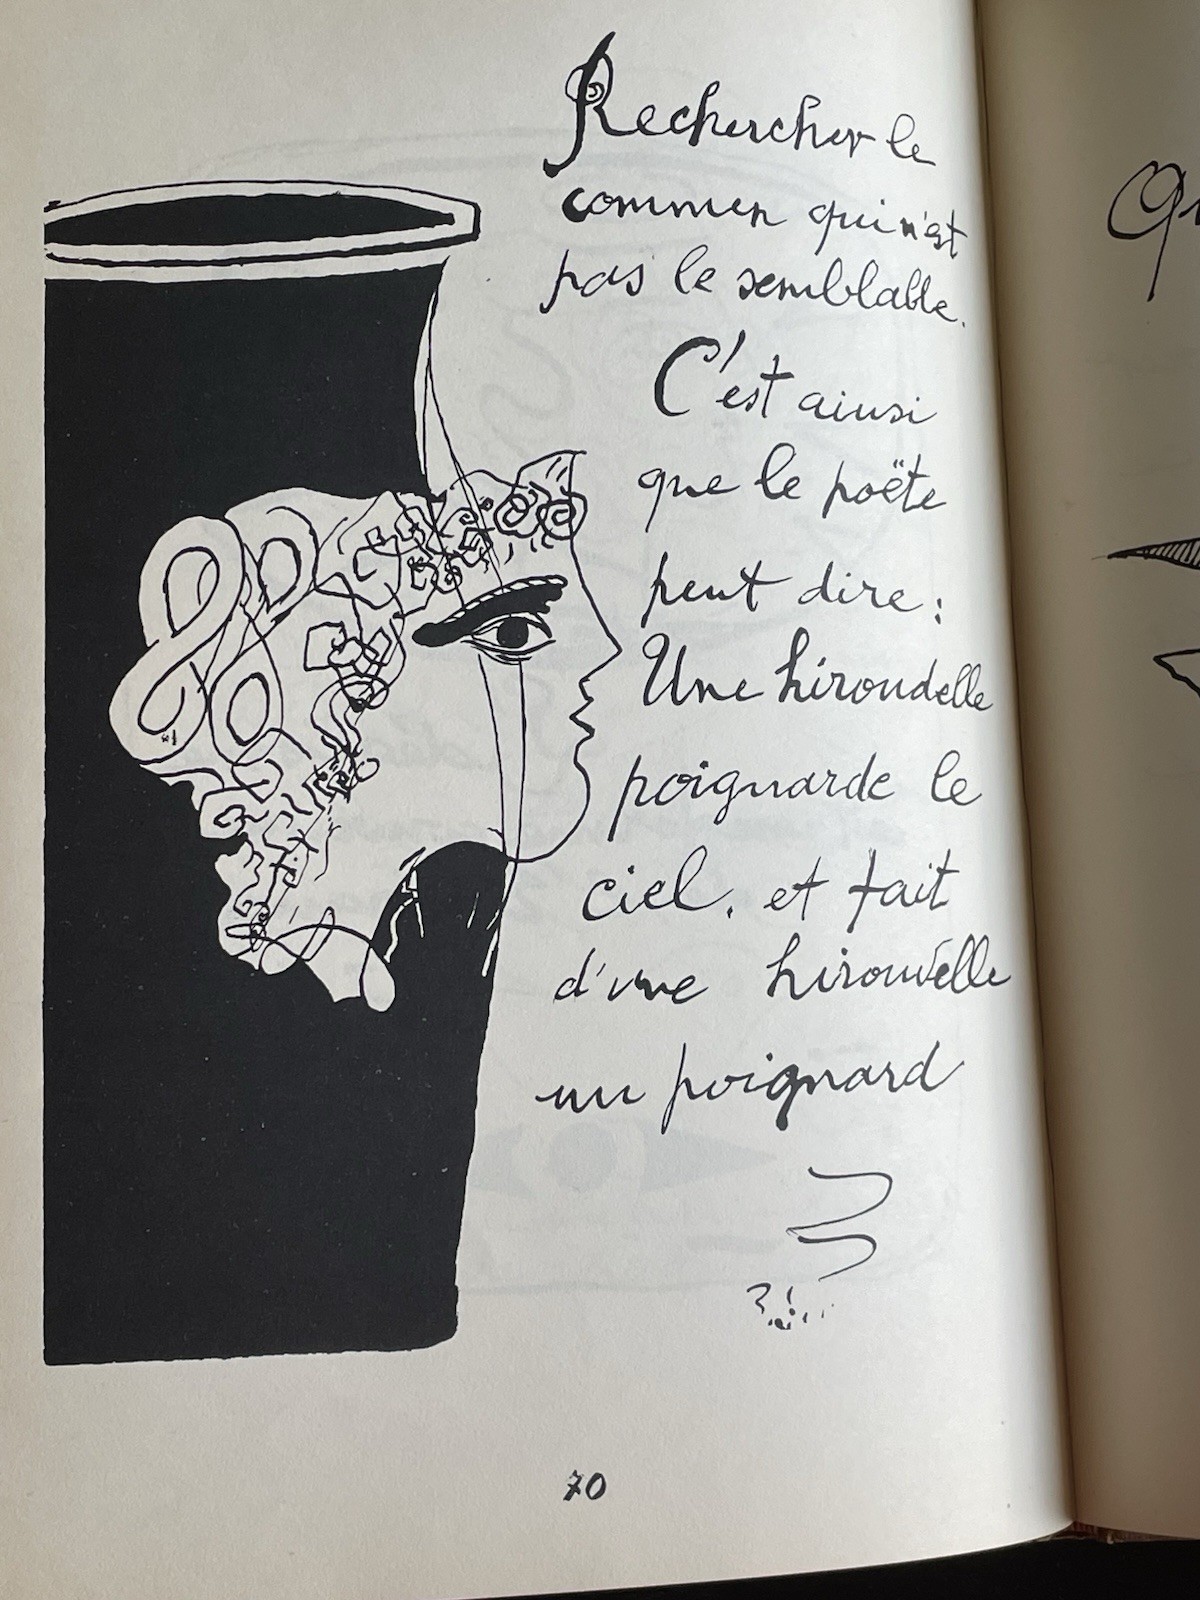 Rechercher le
commun qui n'est
pas le semblable.
C'est ainsi
que le poëte
peut dire:
Une hirondelle
poignarde le
ciel, et fait
d'une hirondelle
un poignard
70